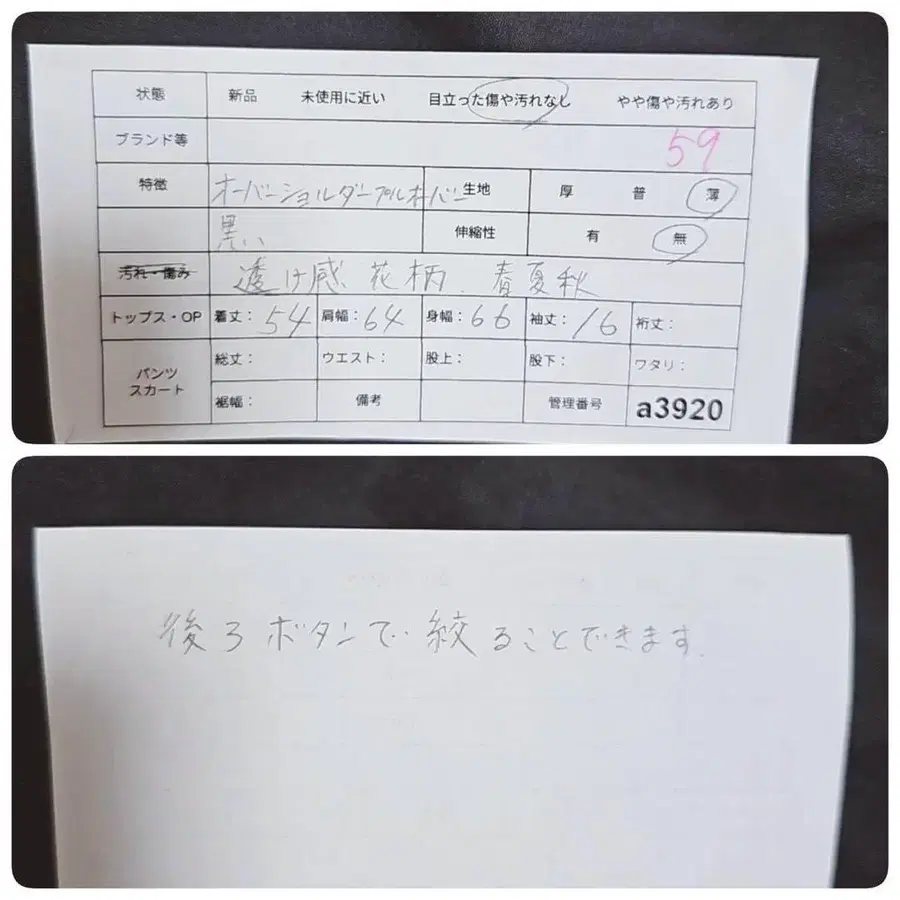 状態 新品 未使用に近い 目立った傷や汚れなし やや傷や汚れあり
ブランド等 59
特徴 オーバーショルダープルオーバー 生地 厚 普 薄
黒い 伸縮性 有 無
汚れ・傷み 透け感 花柄. 春夏秋
トップス・OP 着丈：54 肩幅：64 身幅：66 袖丈：16 裄丈：
パンツ スカート 総丈： ウエスト： 股上： 股下： ワタリ：
裾幅： 備考 管理番号 a3920
後ろボタンで絞ることできます.